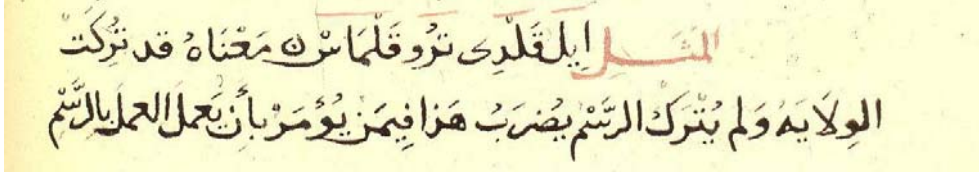 المثل اِيلْ قَلْدِى تَرُو قَلْمَاسْ ن مَعْنَاهُ قد تُرِكَت
الوِلَايَهُ وَلم يُتْرَك الرَّسْم يُضرَبُ هَذا فِيمَن يُؤمَرْ بأن يَعملَ العملَ بالرَّسْم